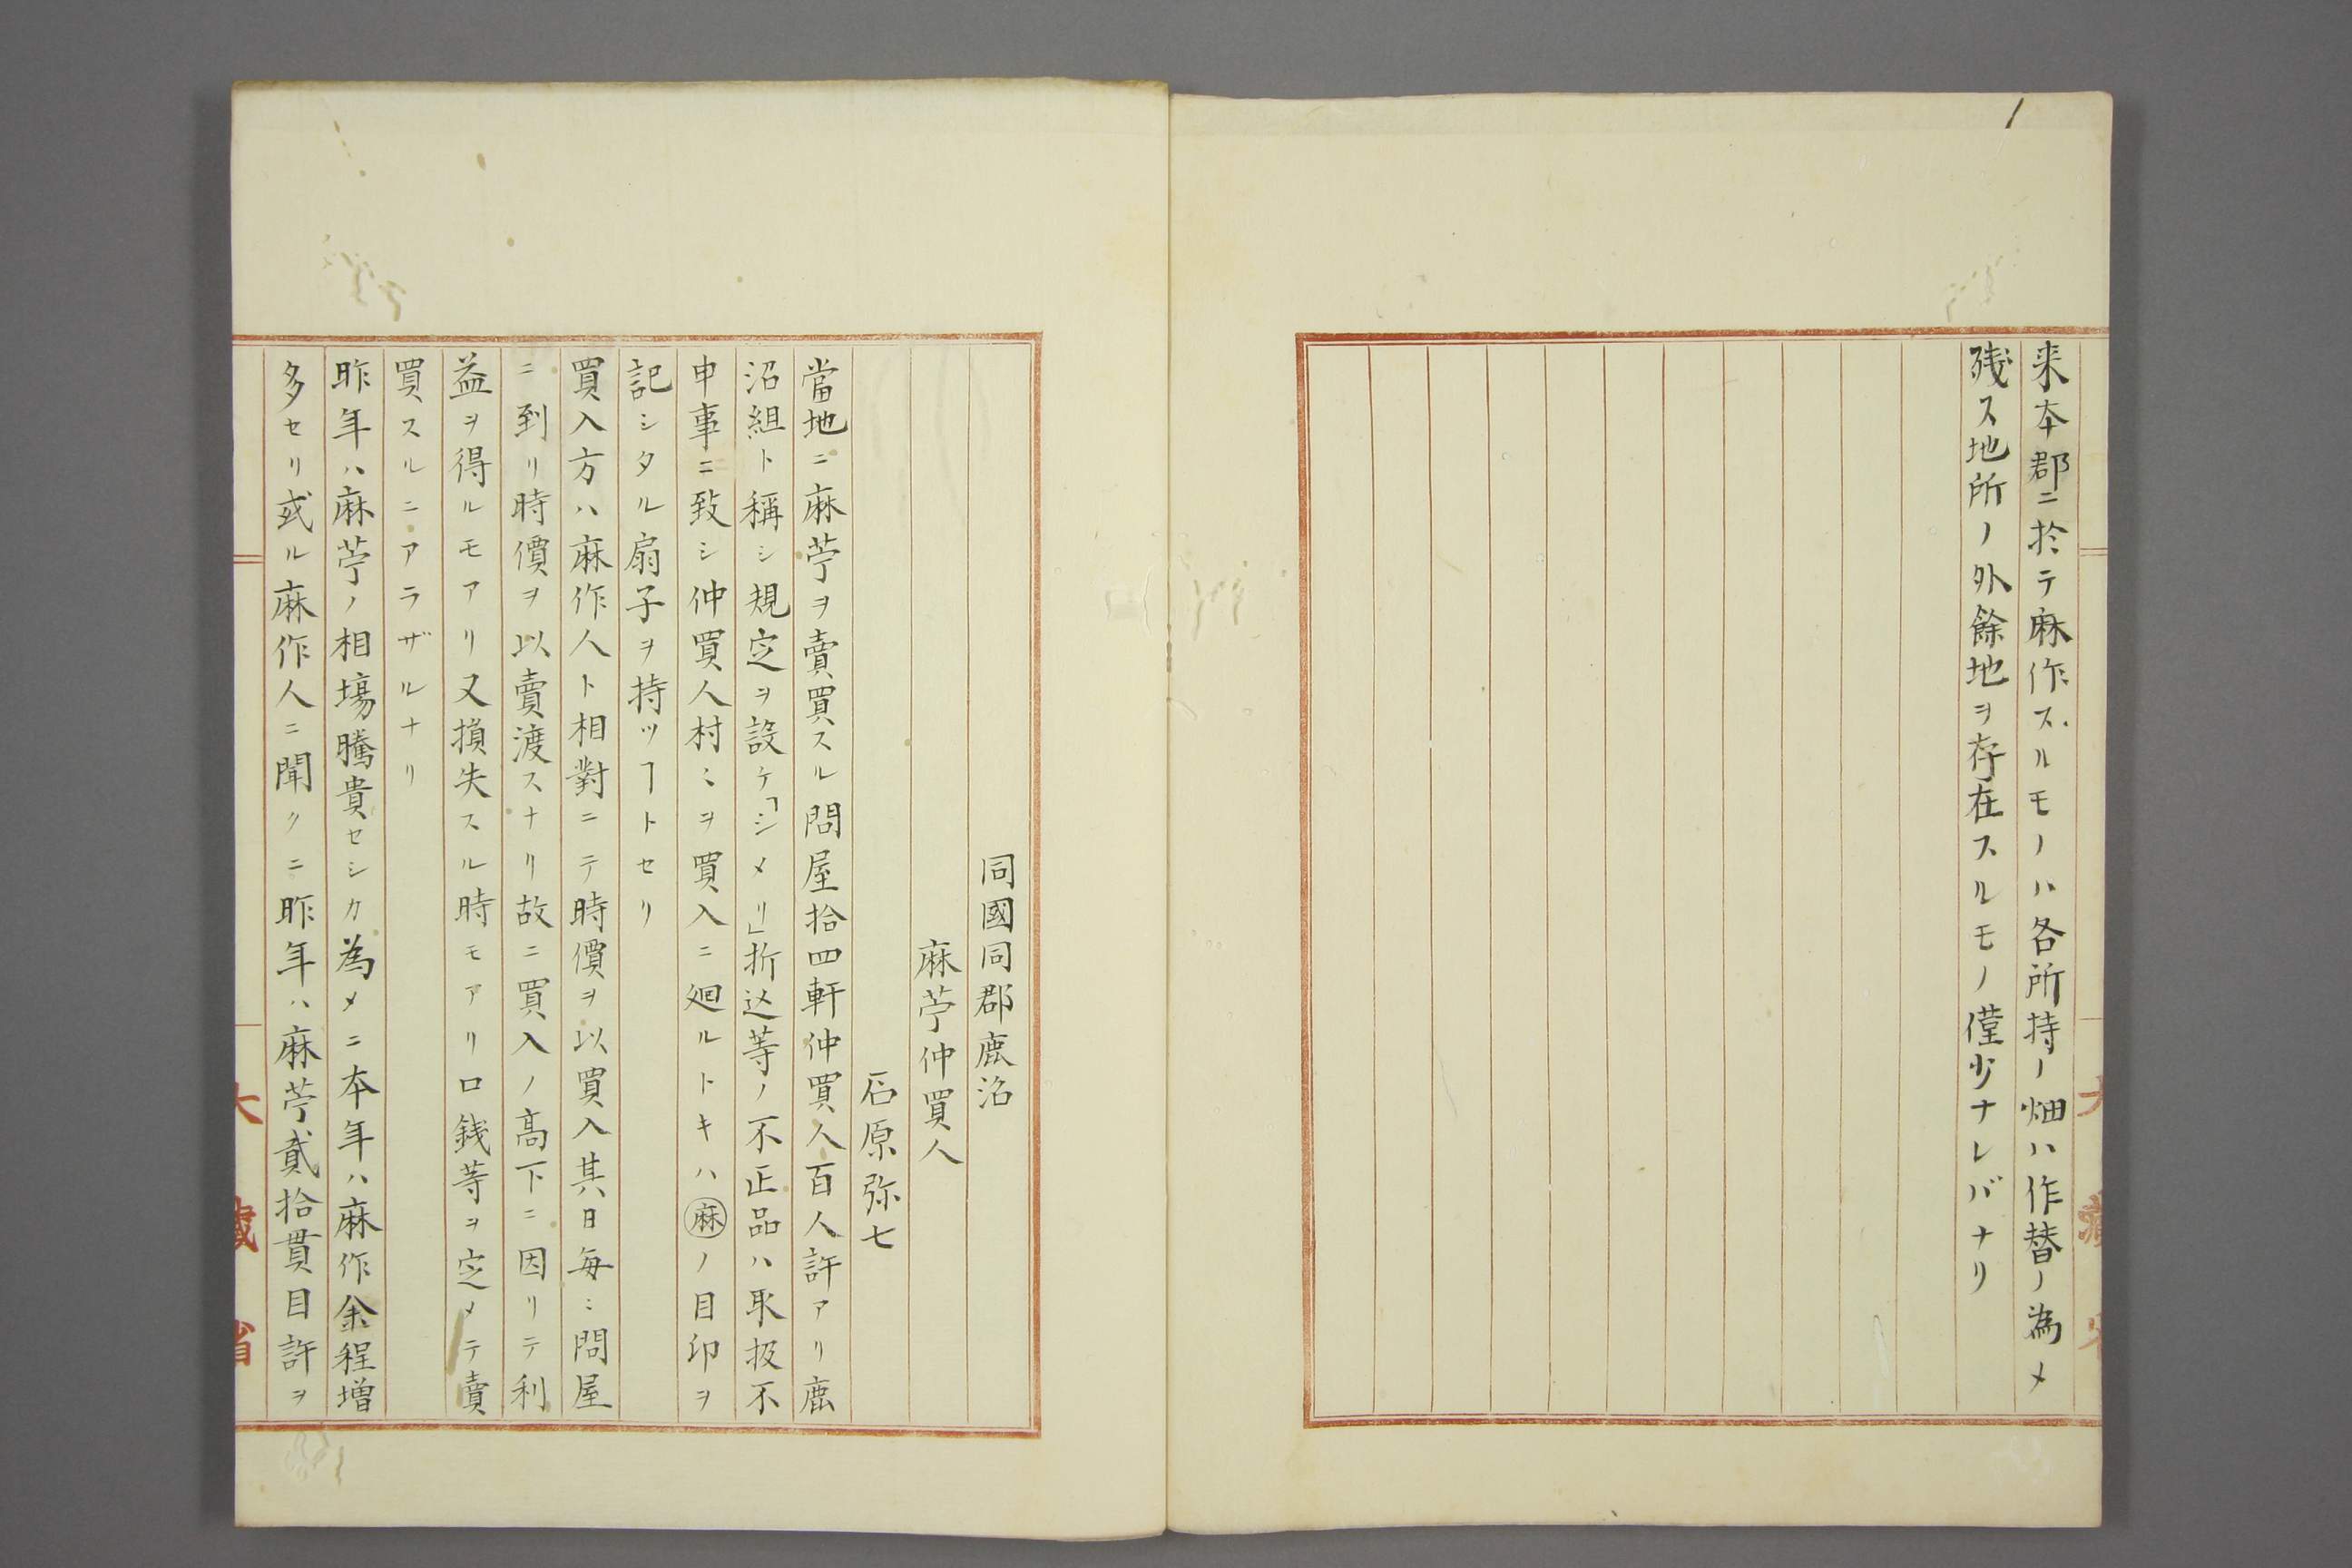 来本郡ニ於テ麻作スルモノハ各所持ノ畑ハ作替ノ為メ
残ス地所ノ外餘地ヲ存在スルモノ僅少ナレバナリ
同國同郡鹿沼
麻苧仲買人
石原弥七
當地ニ麻苧ヲ賣買スル問屋拾四軒仲買人百人許アリ鹿
沼組ト稱シ規定ヲ設ケ「シメリ」折込等ノ不正品ハ取扱不
申事ニ致シ仲買人村〻ヲ買入ニ廻ルトキハ㊙ノ目印ヲ
記シタル扇子ヲ持ツヿトセリ
買入方ハ麻作人ト相對ニテ時價ヲ以買入其日毎〻問屋
ニ到リ時價ヲ以賣渡スナリ故ニ買入ノ高下ニ因リテ利
益ヲ得ルモアリ又損失スル時モアリ口銭等ヲ定メテ賣
買スルニアラザルナリ
昨年ハ麻苧ノ相場騰貴セシカ為メニ本年ハ麻作余程増
多セリ或ル麻作人ニ聞クニ昨年ハ麻苧貳拾貫目許ヲ
大藏省